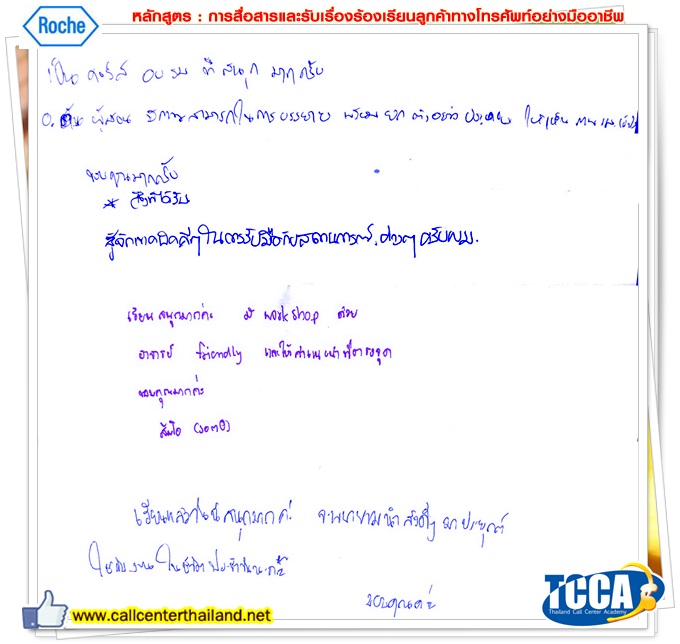 Roche
หลักสูตร : การสื่อสารและรับเรื่องร้องเรียนลูกค้าทางโทรศัพท์อย่างมืออาชีพ
เป็น คอร์ส อบรม ที่ สนุก มากครับ
ผู้สอน มีความสามารถในการบรรยาย พร้อม ยก ตัวอย่าง ให้เห็น
ขอบคุณมากครับ
* สิ่งที่ได้รับ
รู้จักแนวคิดดีๆในการรับมือกับสถานการณ์ต่างๆครับผม.
เรียนสนุกมากค่ะ มี workshop ด้วย
อาจารย์ friendly และให้คำแนะนำที่ตรงจุด
ขอบคุณมากค่ะ
เรียนแล้ว สนุกมากค่ะ จะพยายามนำสิ่งดีๆ มาประยุกต์
ใช้กับงาน ในชีวิตประจำวันนะคะ
ขอบคุณค่ะ
www.callcenterthailand.net
TCCA
Thailand Call Center Academy